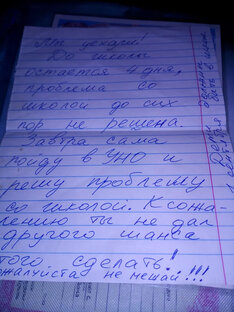 Мы уехали!
До школы
остается 4 дня,
проблема со
школой до сих
пор не решена.
Завтра сама
пойду в УНО и
решу проблему
со школой. К сожа-
лению ты не дал
другого шанса
того сделать!
ожалуйста не мешай!!!
должен
быть в школе
1 сентября